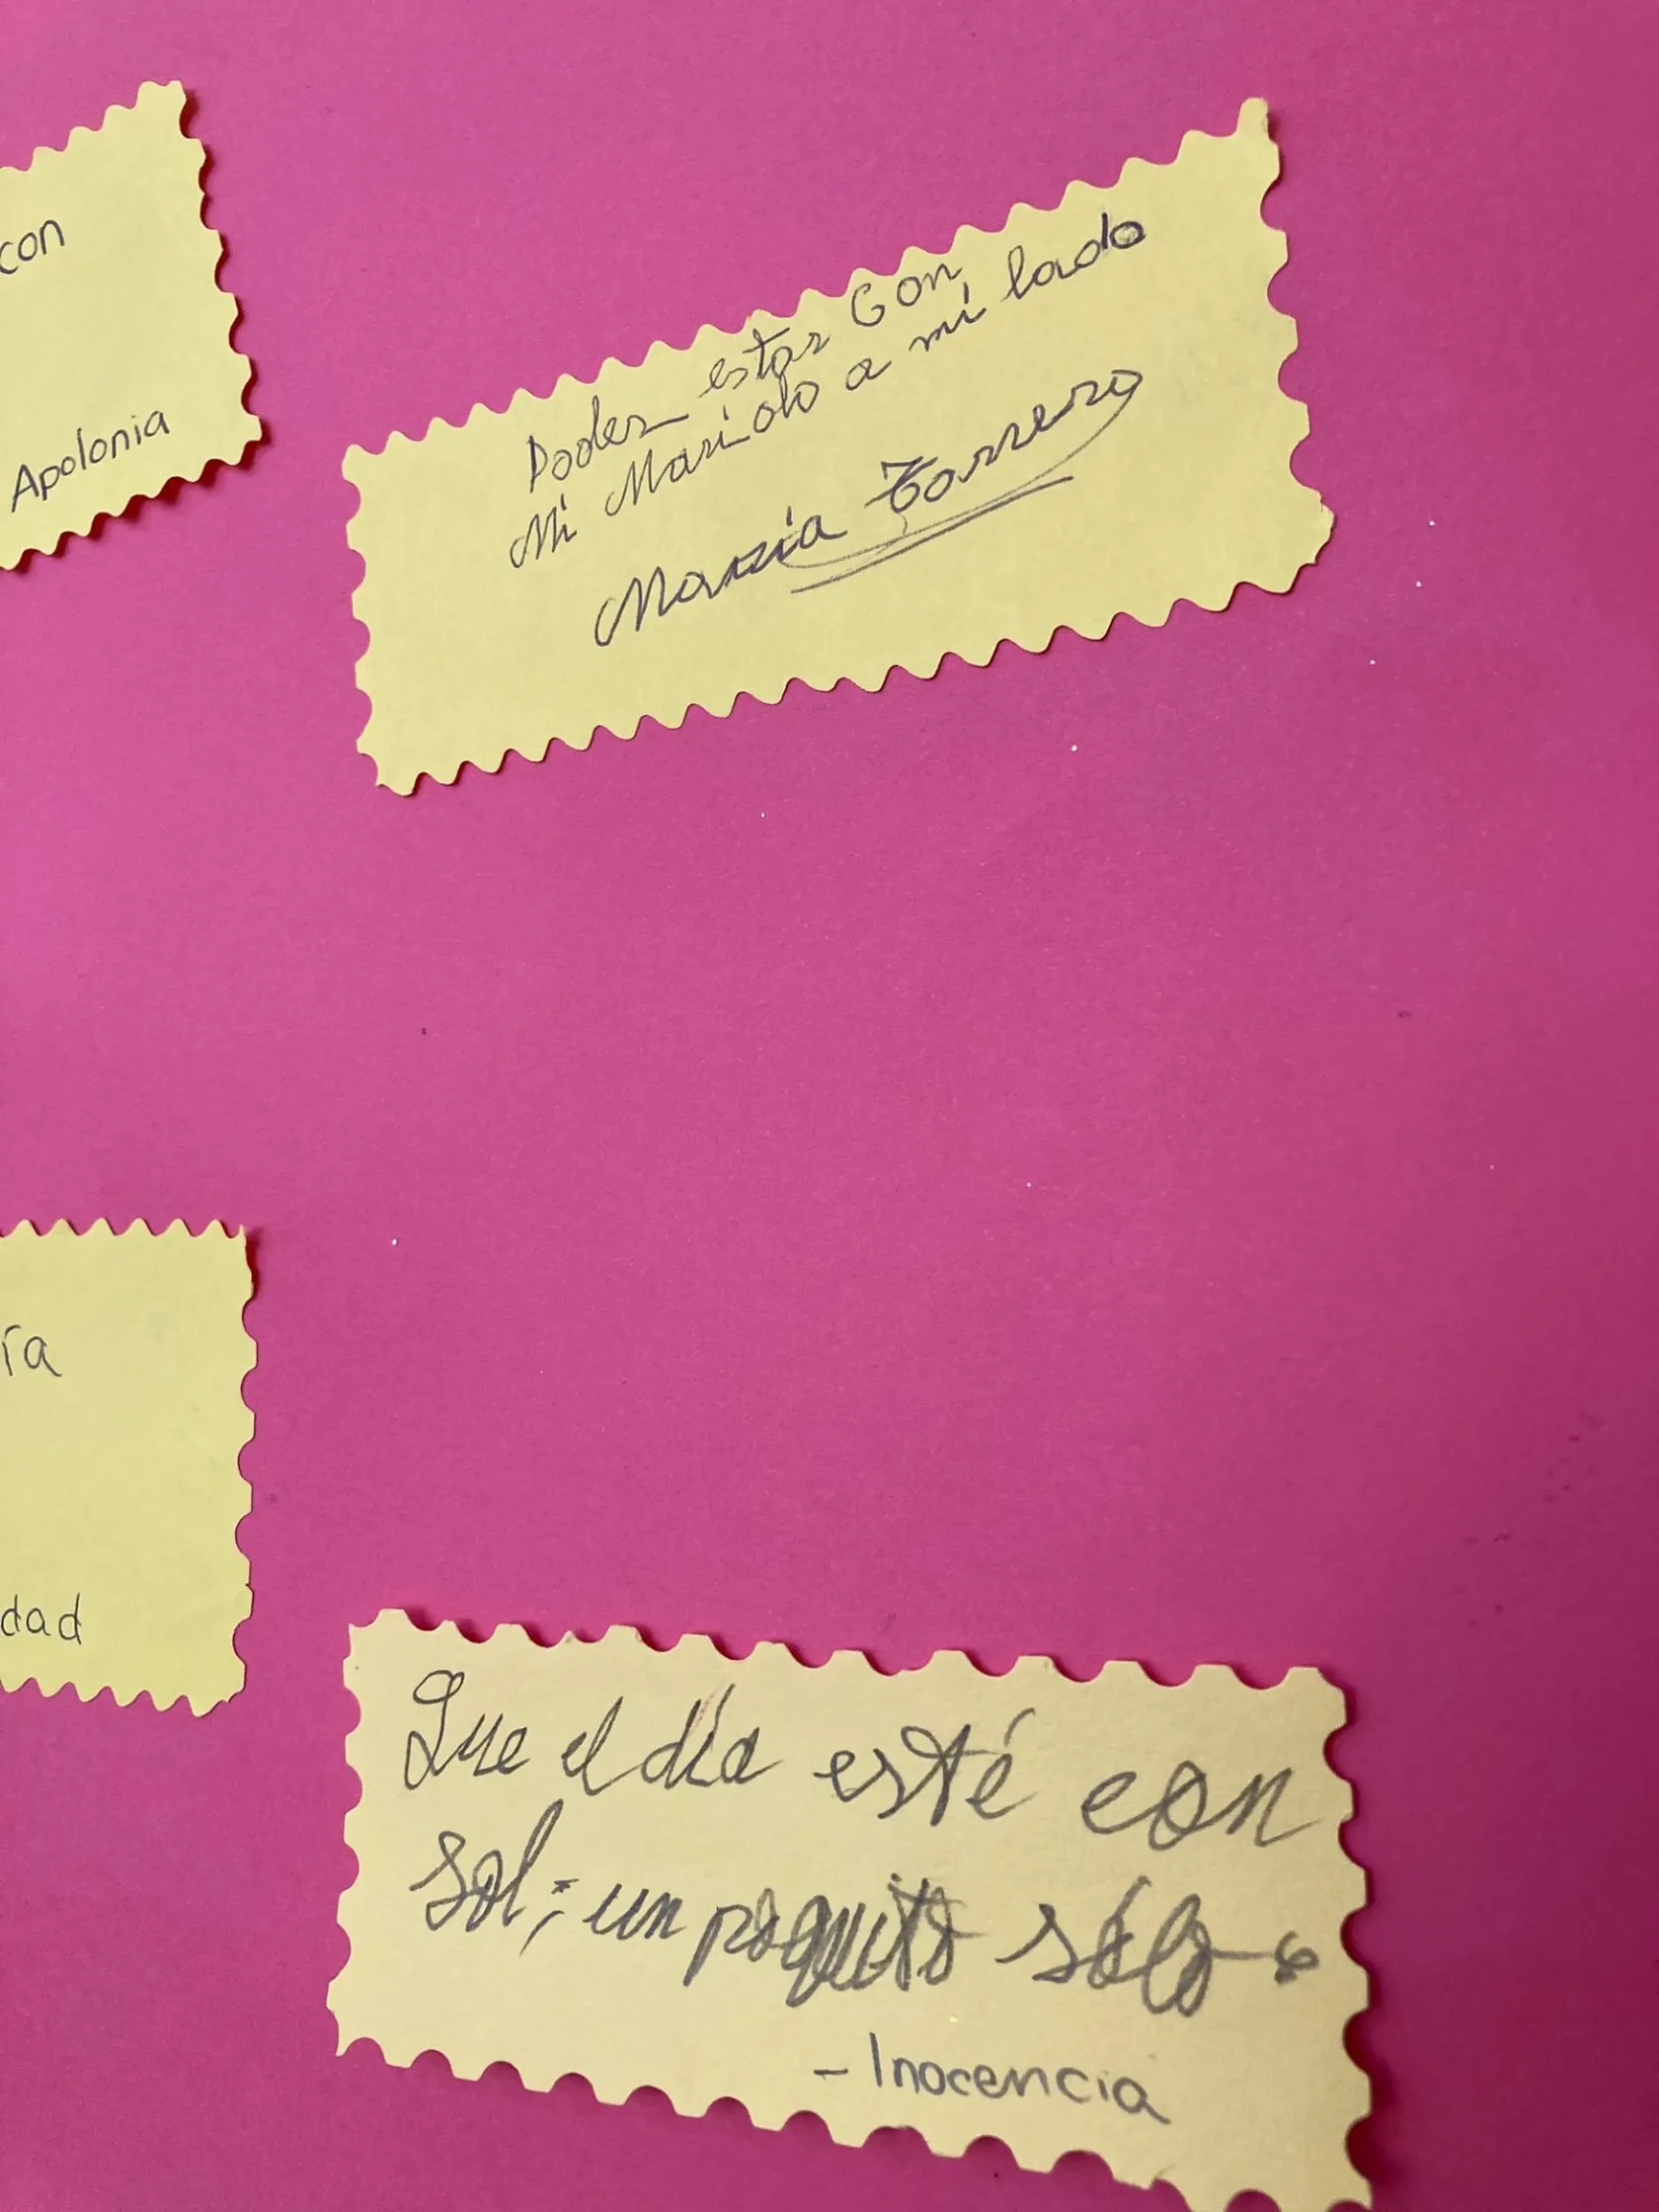 con
Apolonia
Poder estar Con
Mi Marido a mi lado
María Torrero
ía
dad
Que el día esté con
sol; un poquito sólo.
- Inocencia